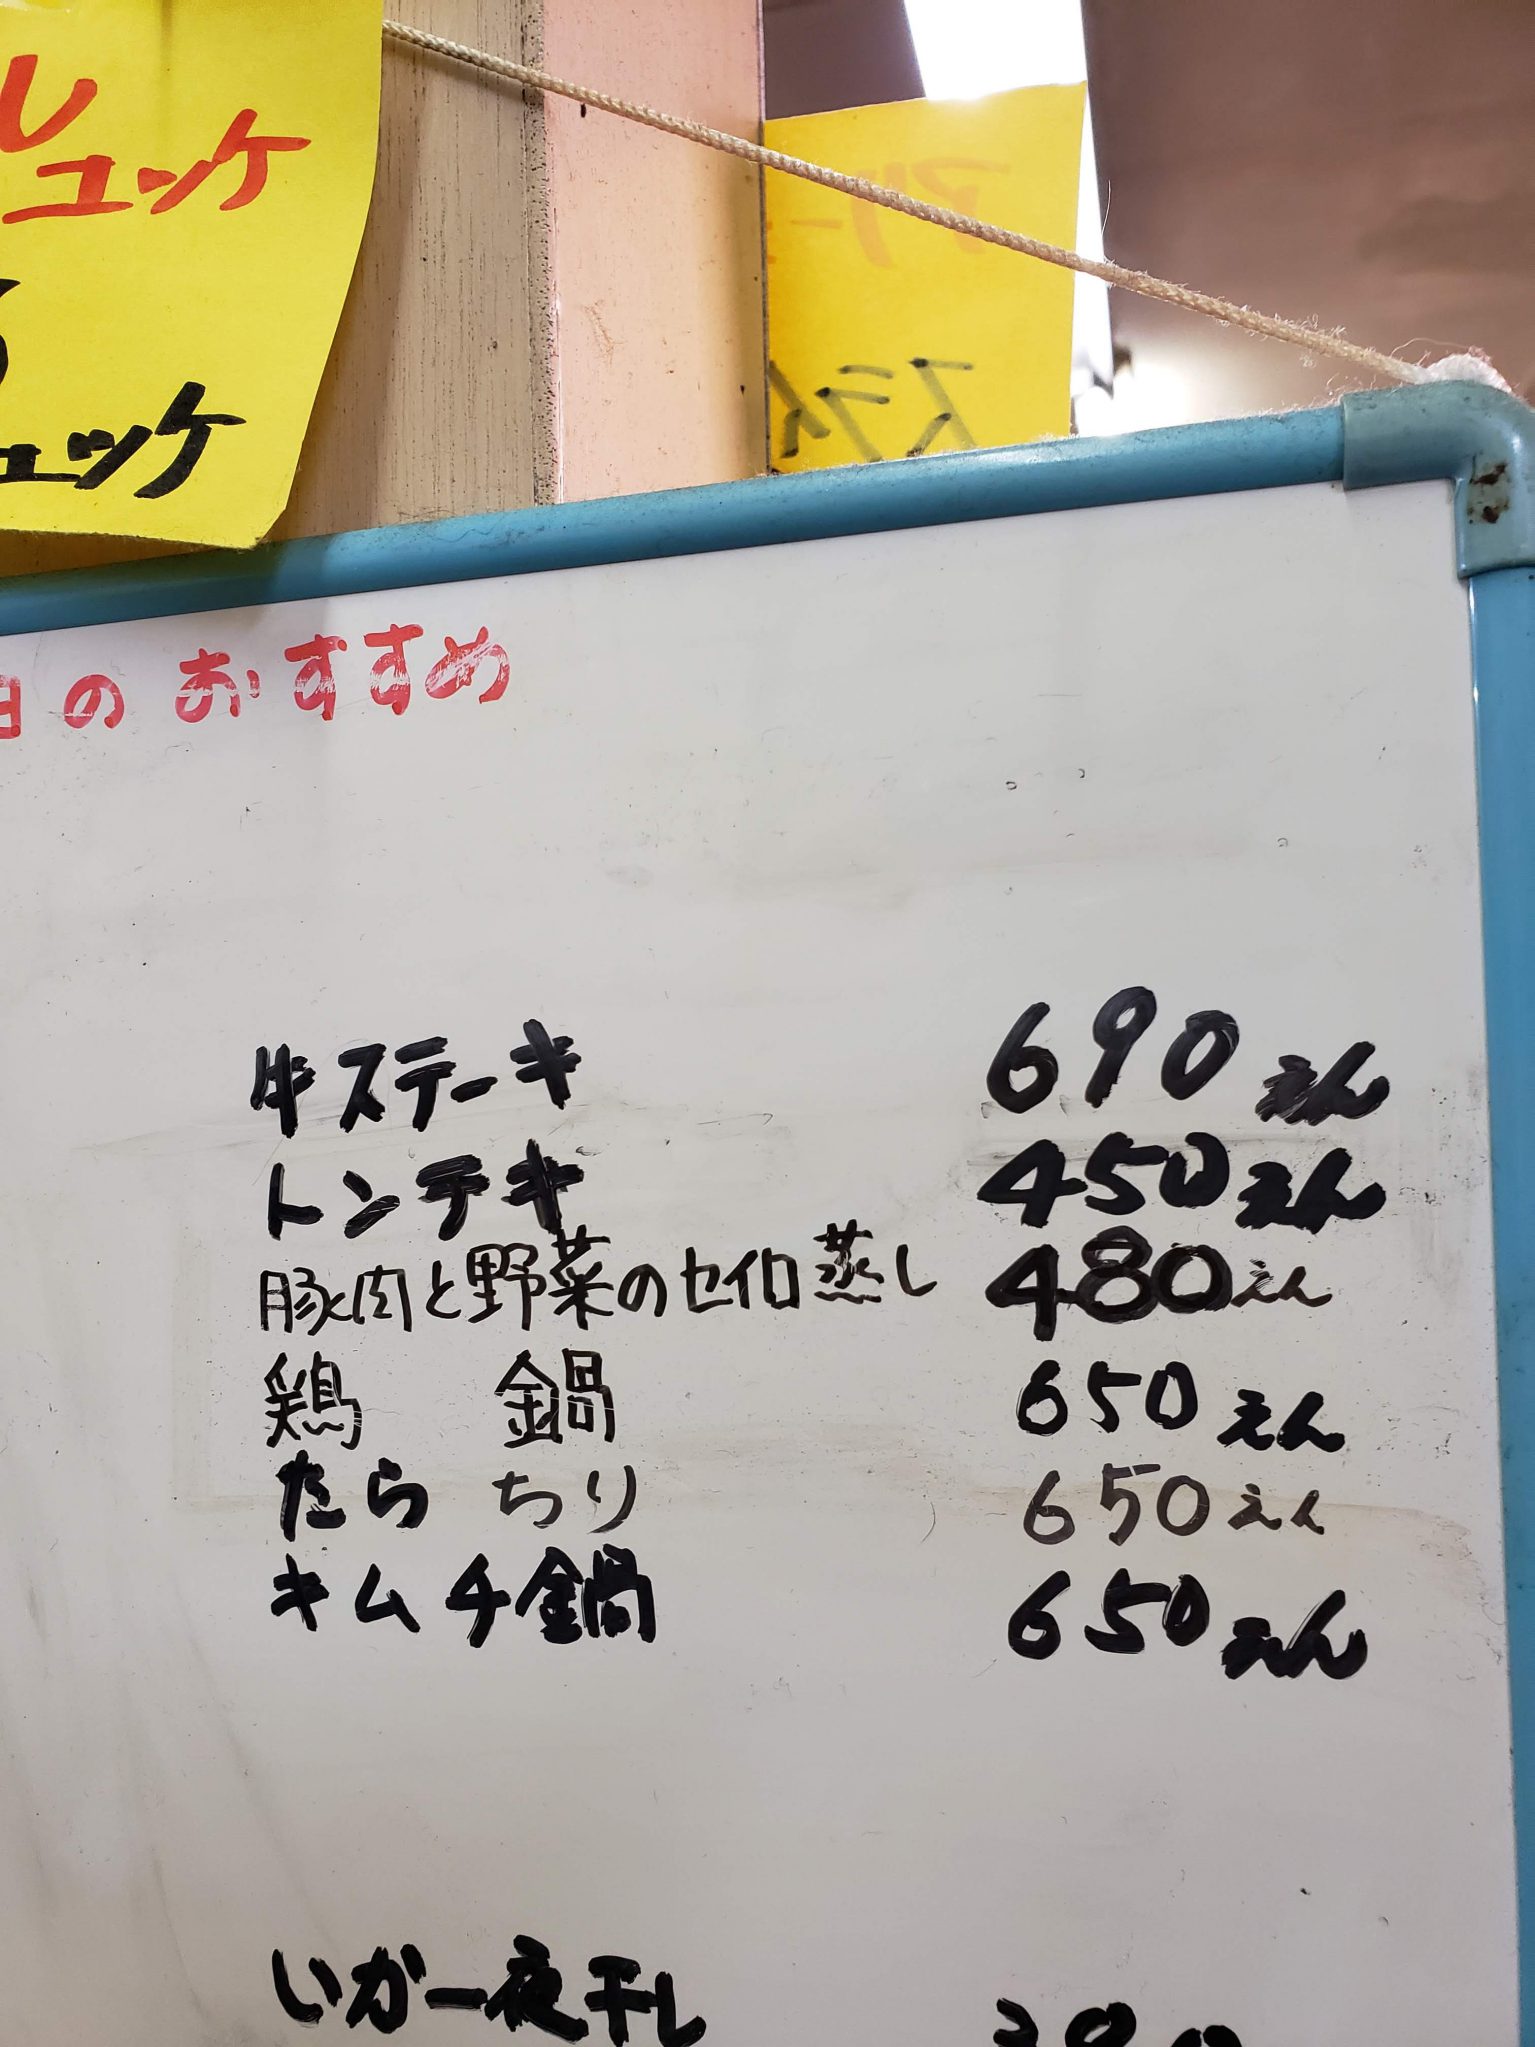 し
ユッケ
ユッケ
日のおすすめ
牛ステーキ 690えん
トンテキ 450えん
豚肉と野菜のセイロ蒸し 480えん
鶏 鍋 650えん
たら ちり 650えん
キムチ鍋 650えん
いか一夜干し